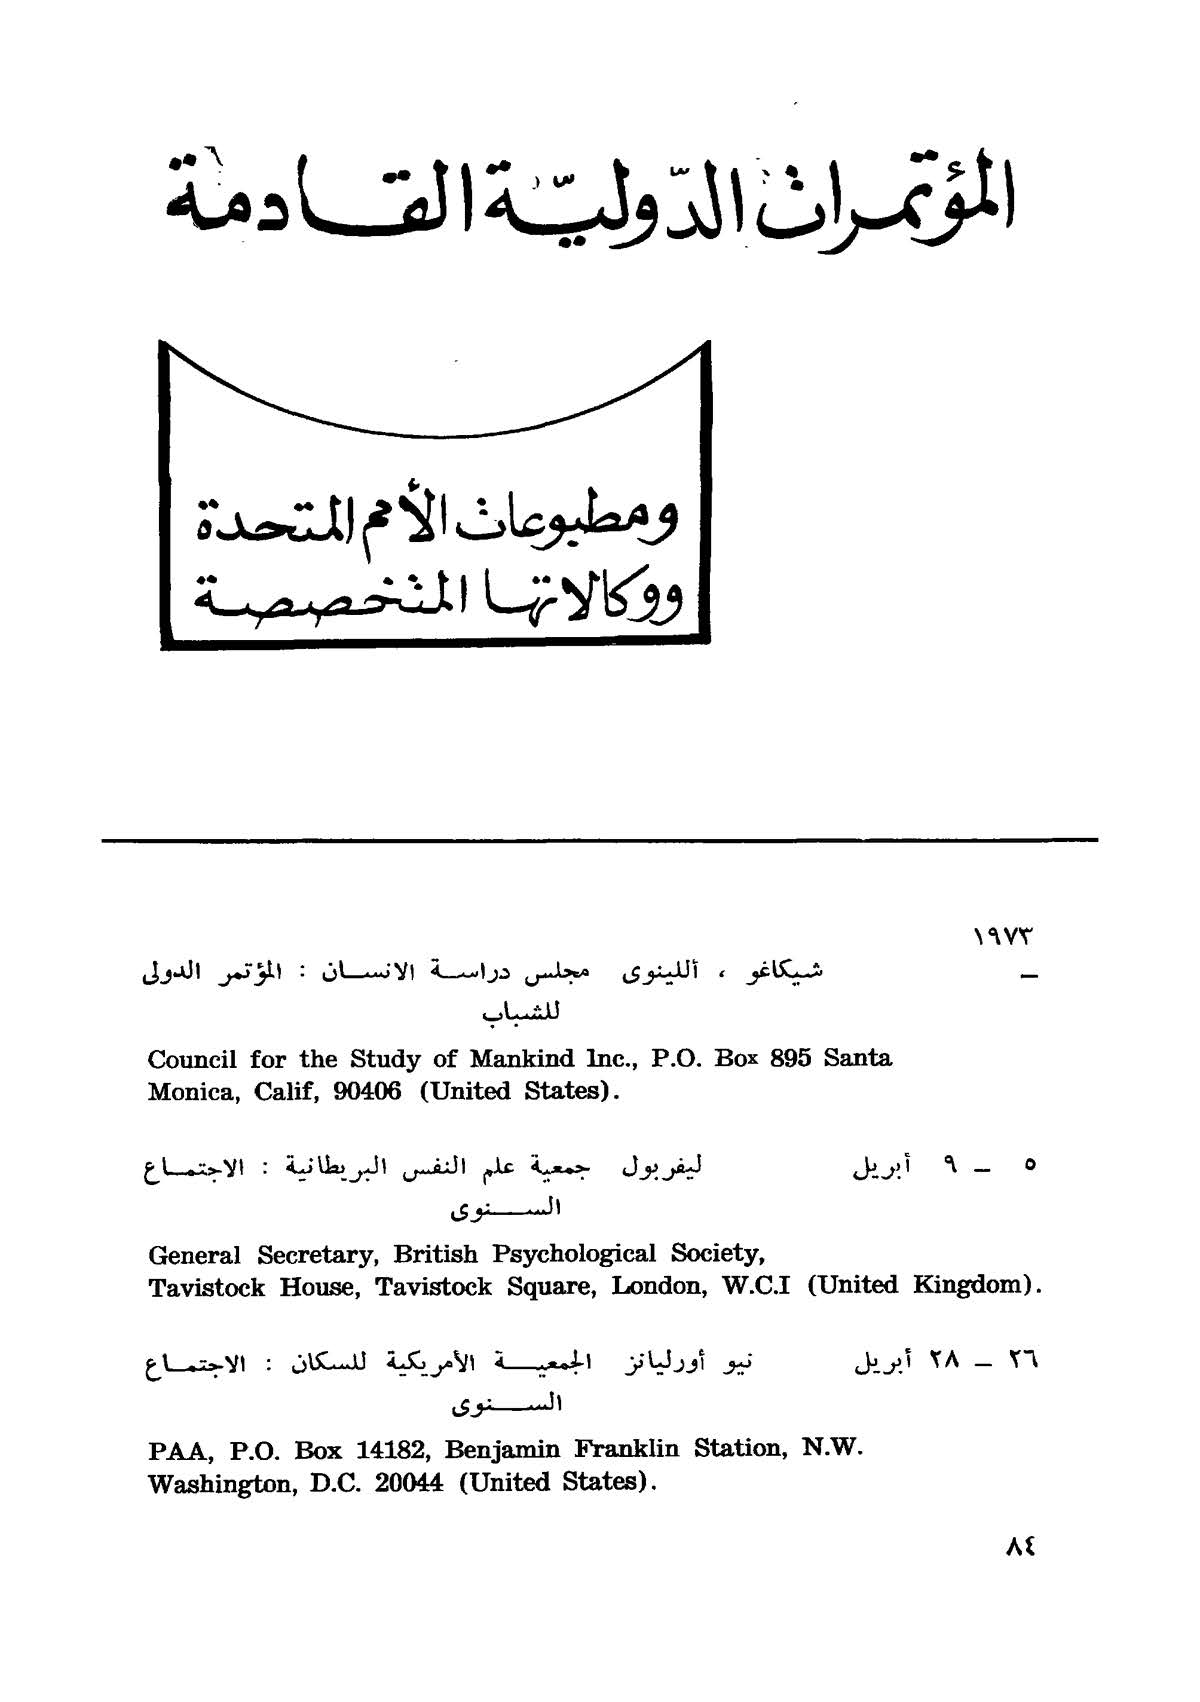 المؤتمرات الدّوليّة القادمة
ومطبوعات الأمم المتحدة
ووكالاتها المتخصصة
١٩٧٣
— شيكاغو ، أللينوى مجلس دراسة الانسان : المؤتمر الدولى
للشباب
Council for the Study of Mankind Inc., P.O. Box 895 Santa
Monica, Calif, 90406 (United States).
٥ — ٩ أبريل ليفربول جمعية علم النفس البريطانية : الاجتماع
السنوى
General Secretary, British Psychological Society,
Tavistock House, Tavistock Square, London, W.C.I (United Kingdom).
٢٦ — ٢٨ أبريل نيو أورليانز الجمعية الأمريكية للسكان : الاجتماع
السنوى
PAA, P.O. Box 14182, Benjamin Franklin Station, N.W.
Washington, D.C. 20044 (United States).
٨٤